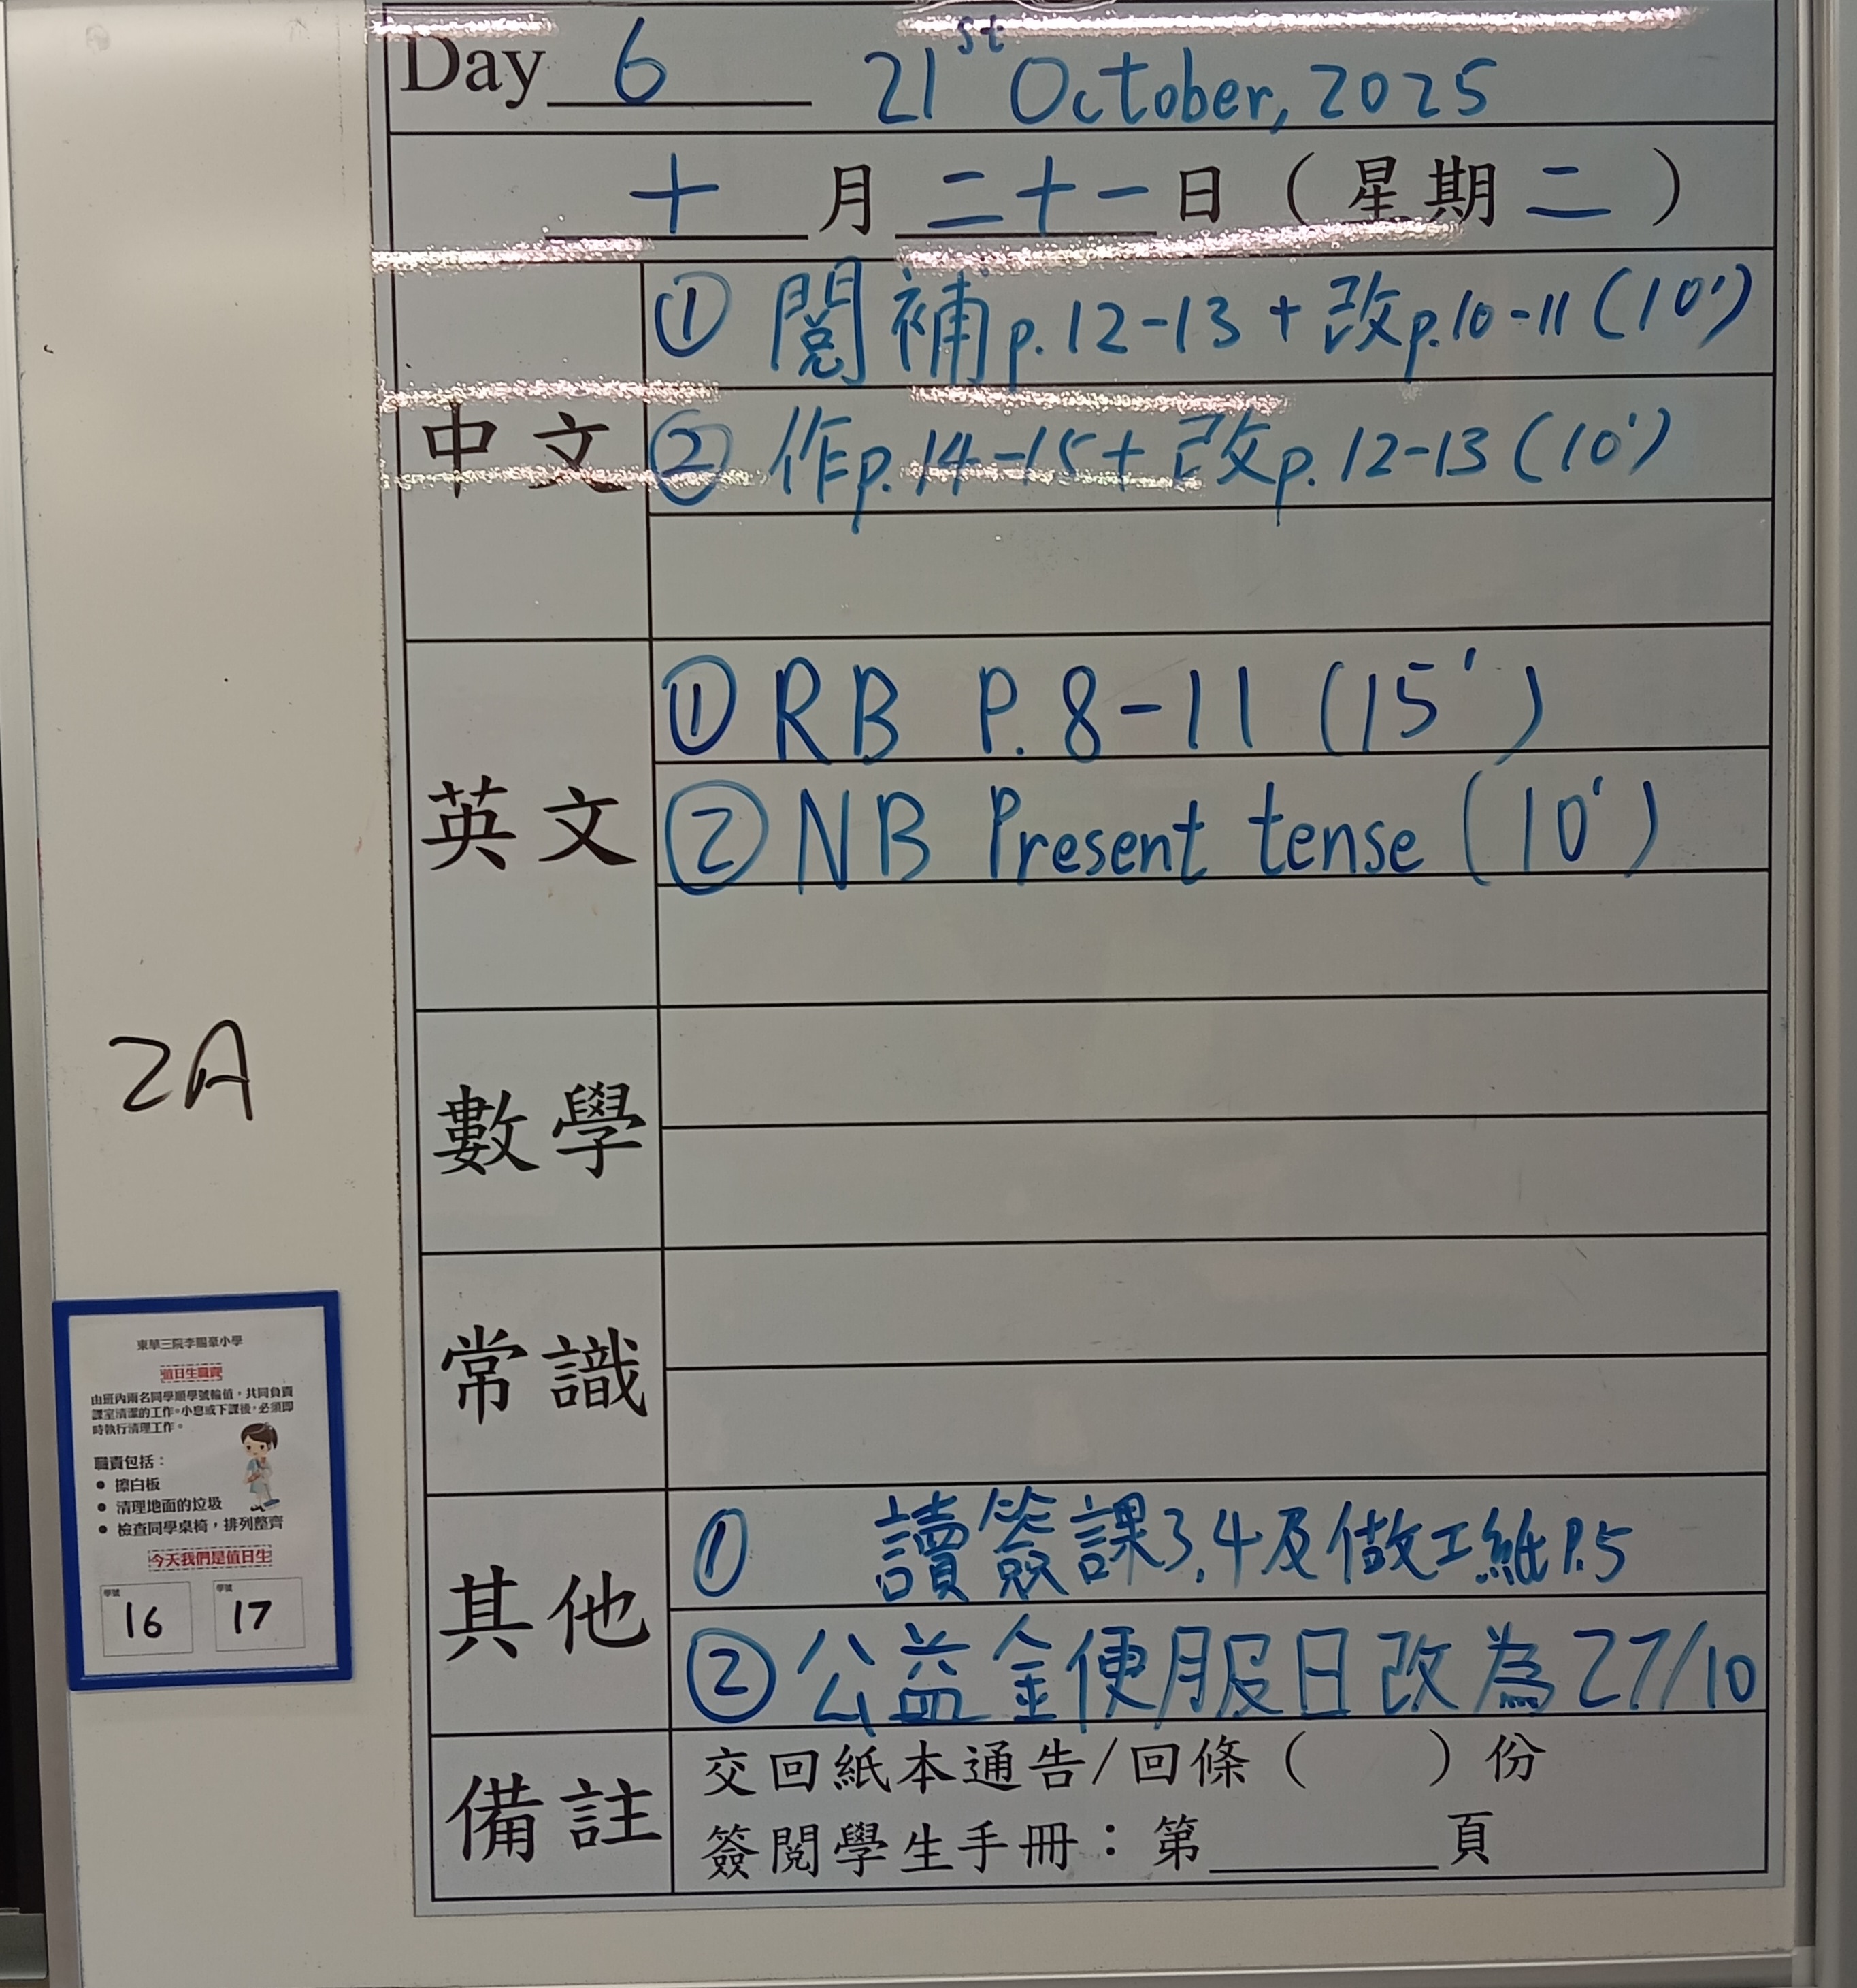 Day 6 21st October, 2025
十月二十一日（星期二）
中文
① 閱補p.12-13 + 改p.10-11 (10')
② 作p.14-15 + 改p.12-13 (10')
英文
① RB P.8-11 (15')
② NB Present tense (10')
數學
常識
其他
① 讀簽課3,4及做工紙P.5
② 公益金便服日改為27/10
備註
交回紙本通告/回條（ ）份
簽閱學生手冊：第______頁
2A
東華三院李賜豪小學
值日生職責
由班內兩名同學順學號輪值，共同負責
課室清潔的工作。小息或下課後，必須即
時執行清理工作。
職責包括：
● 擦白板
● 清理地面的垃圾
● 檢查同學桌椅，排列整齊
今天我們是值日生
學號 學號
16 17